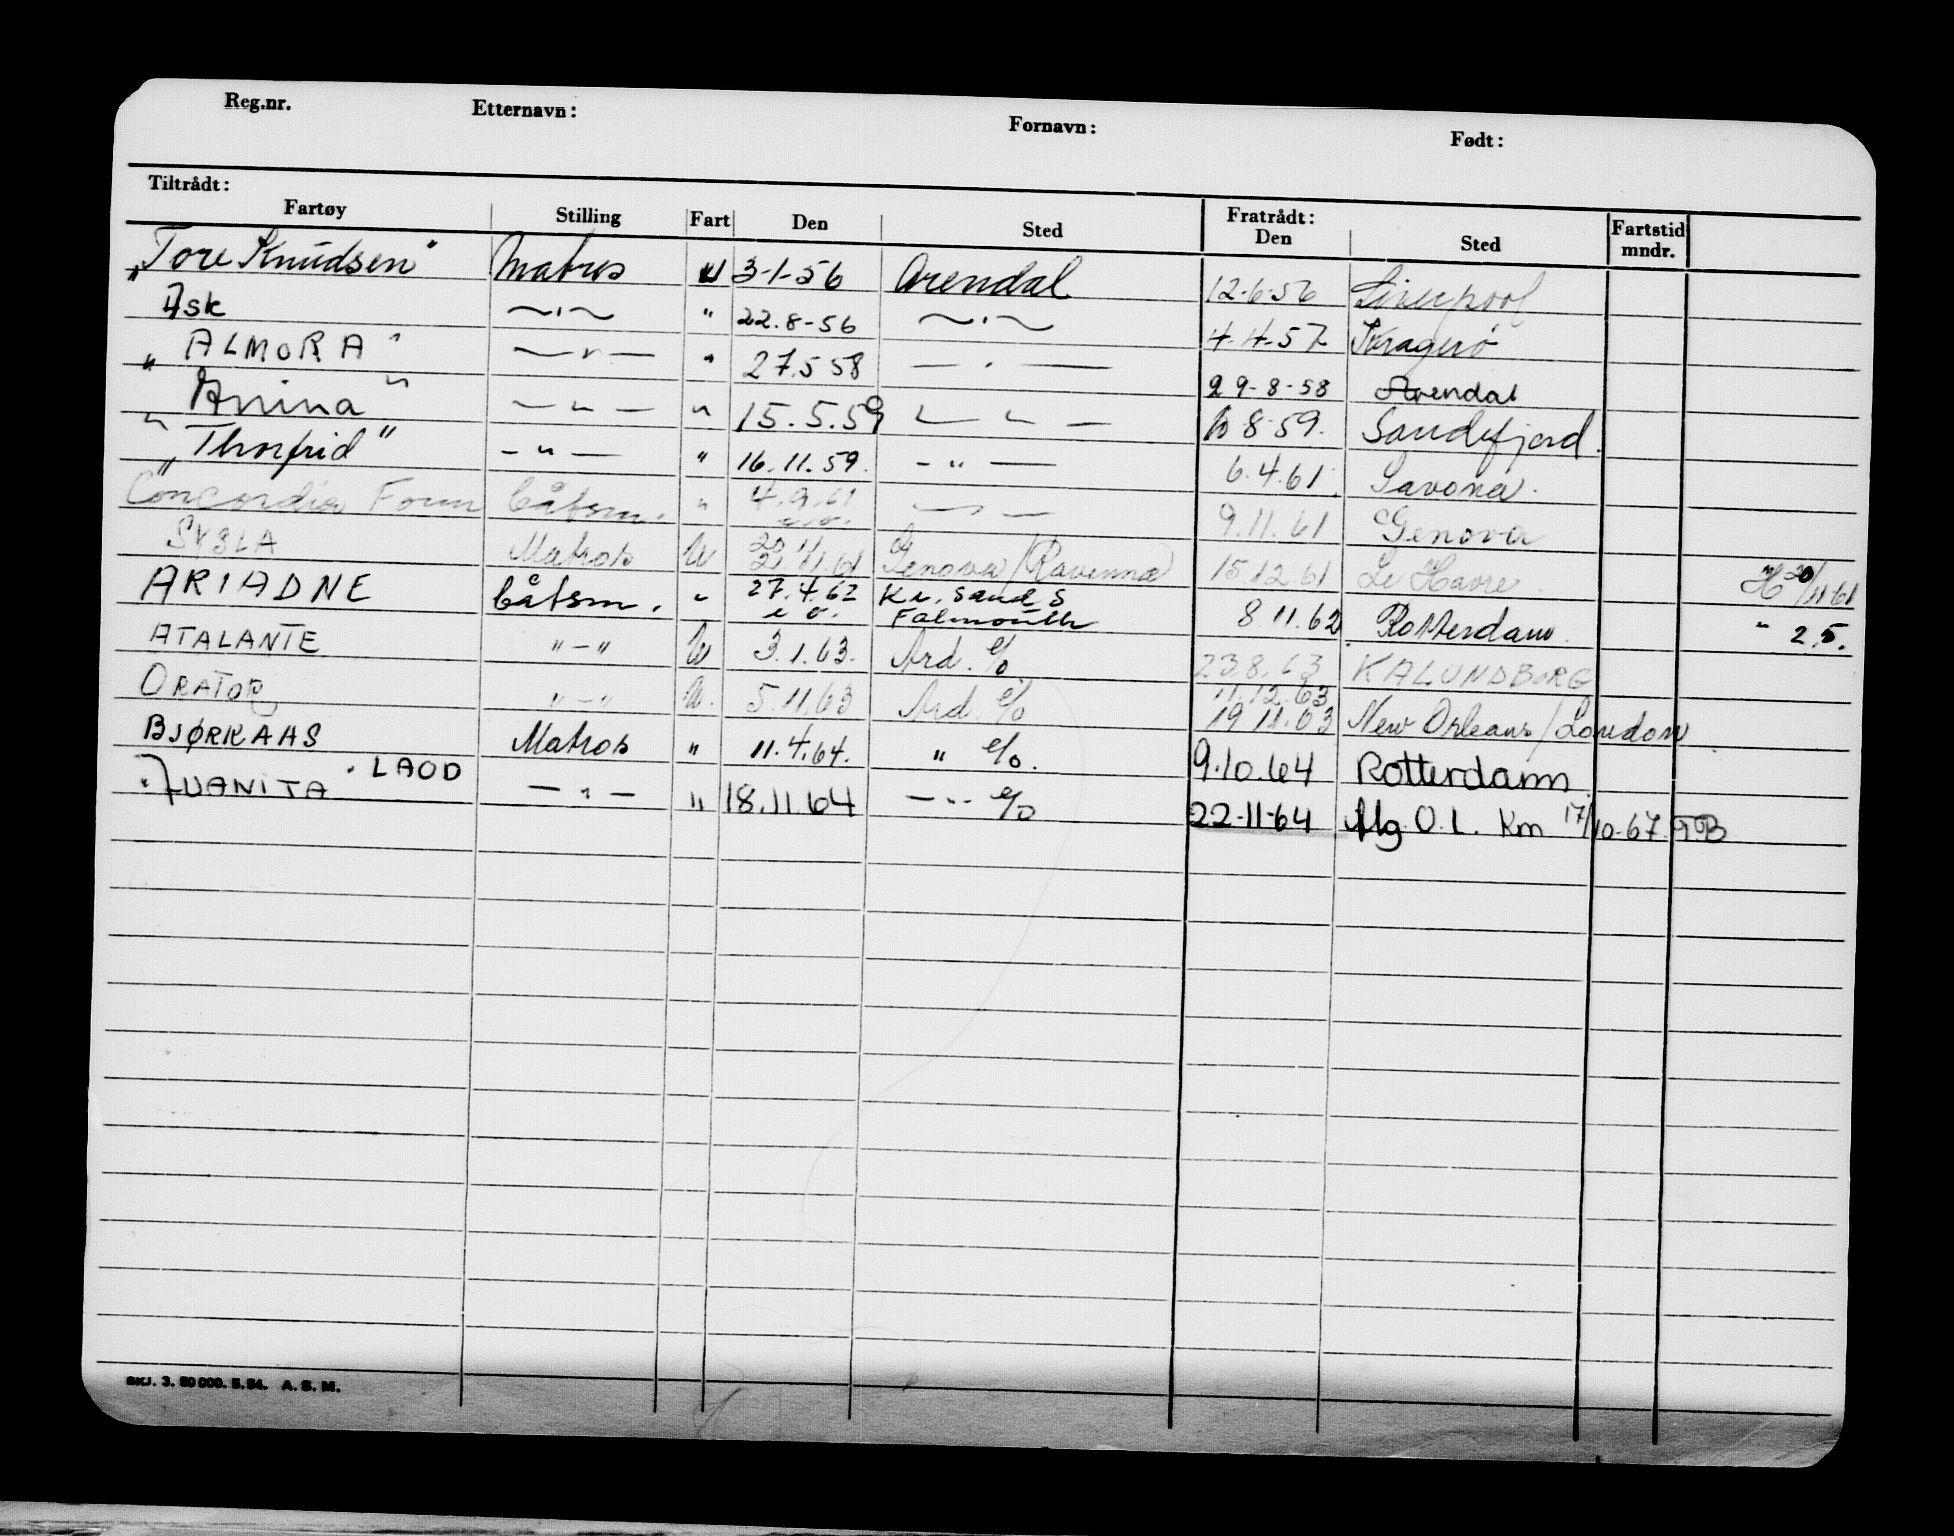 Reg.nr. Etternavn: Fornavn: Født:
Tiltrådt: Fratrådt:
Fartøy Stilling Fart Den Sted Den Sted Fartstid mndr.
"Tore Knudsen" Matros U 3-1-56 Arendal 12-6-56 Liverpool
Ask —"— " 22.8-56 —"— 4-4-57 Kragerø
"ALMORA" —"— " 27.5 58 —"— 29-8-58 Arendal
"Anina" —"— " 15.5.59 —"— 8 59. Sandefjord.
"Thorfrid" —"— " 16.11.59. —"— 6.4.61. Savona.
Concordia Fonn båtsm. " 4.9.61 —"— 9.11.61 Genova
Matros U Genova/Ravenna 15.12.61 Le Havre H 20/11-61
ARIADNE båtsm. " 27.4.62 Kr. sand S Falmouth 8.11.62 Rotterdam. " 25.
ATALANTE "-" U 3.1.63. Ard. e/o 23.8.63 KALUNDBORG
ORATOR "-" U. 5.11.63 Ard. e/o 11.12.63 19 11.63 New Orleans/London
BJØRKAAS Matros " 11.4.64. " e/o. 9.10.64 Rotterdam.
"JUANITA" LAOD —"— " 18.11.64 —"— e/o 22-11-64 Mg. O.L. Km 17/10-67.
SKJ. 3. 50 000. 5.54. A. S. M.